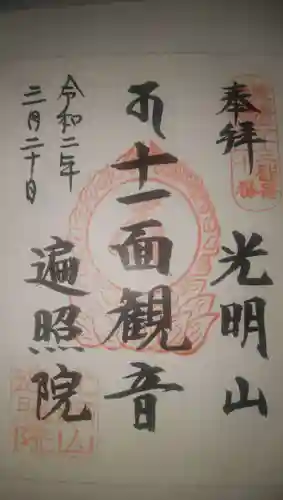 奉拝
光明山
十一面観音
令和二年
三月二十日
遍照院